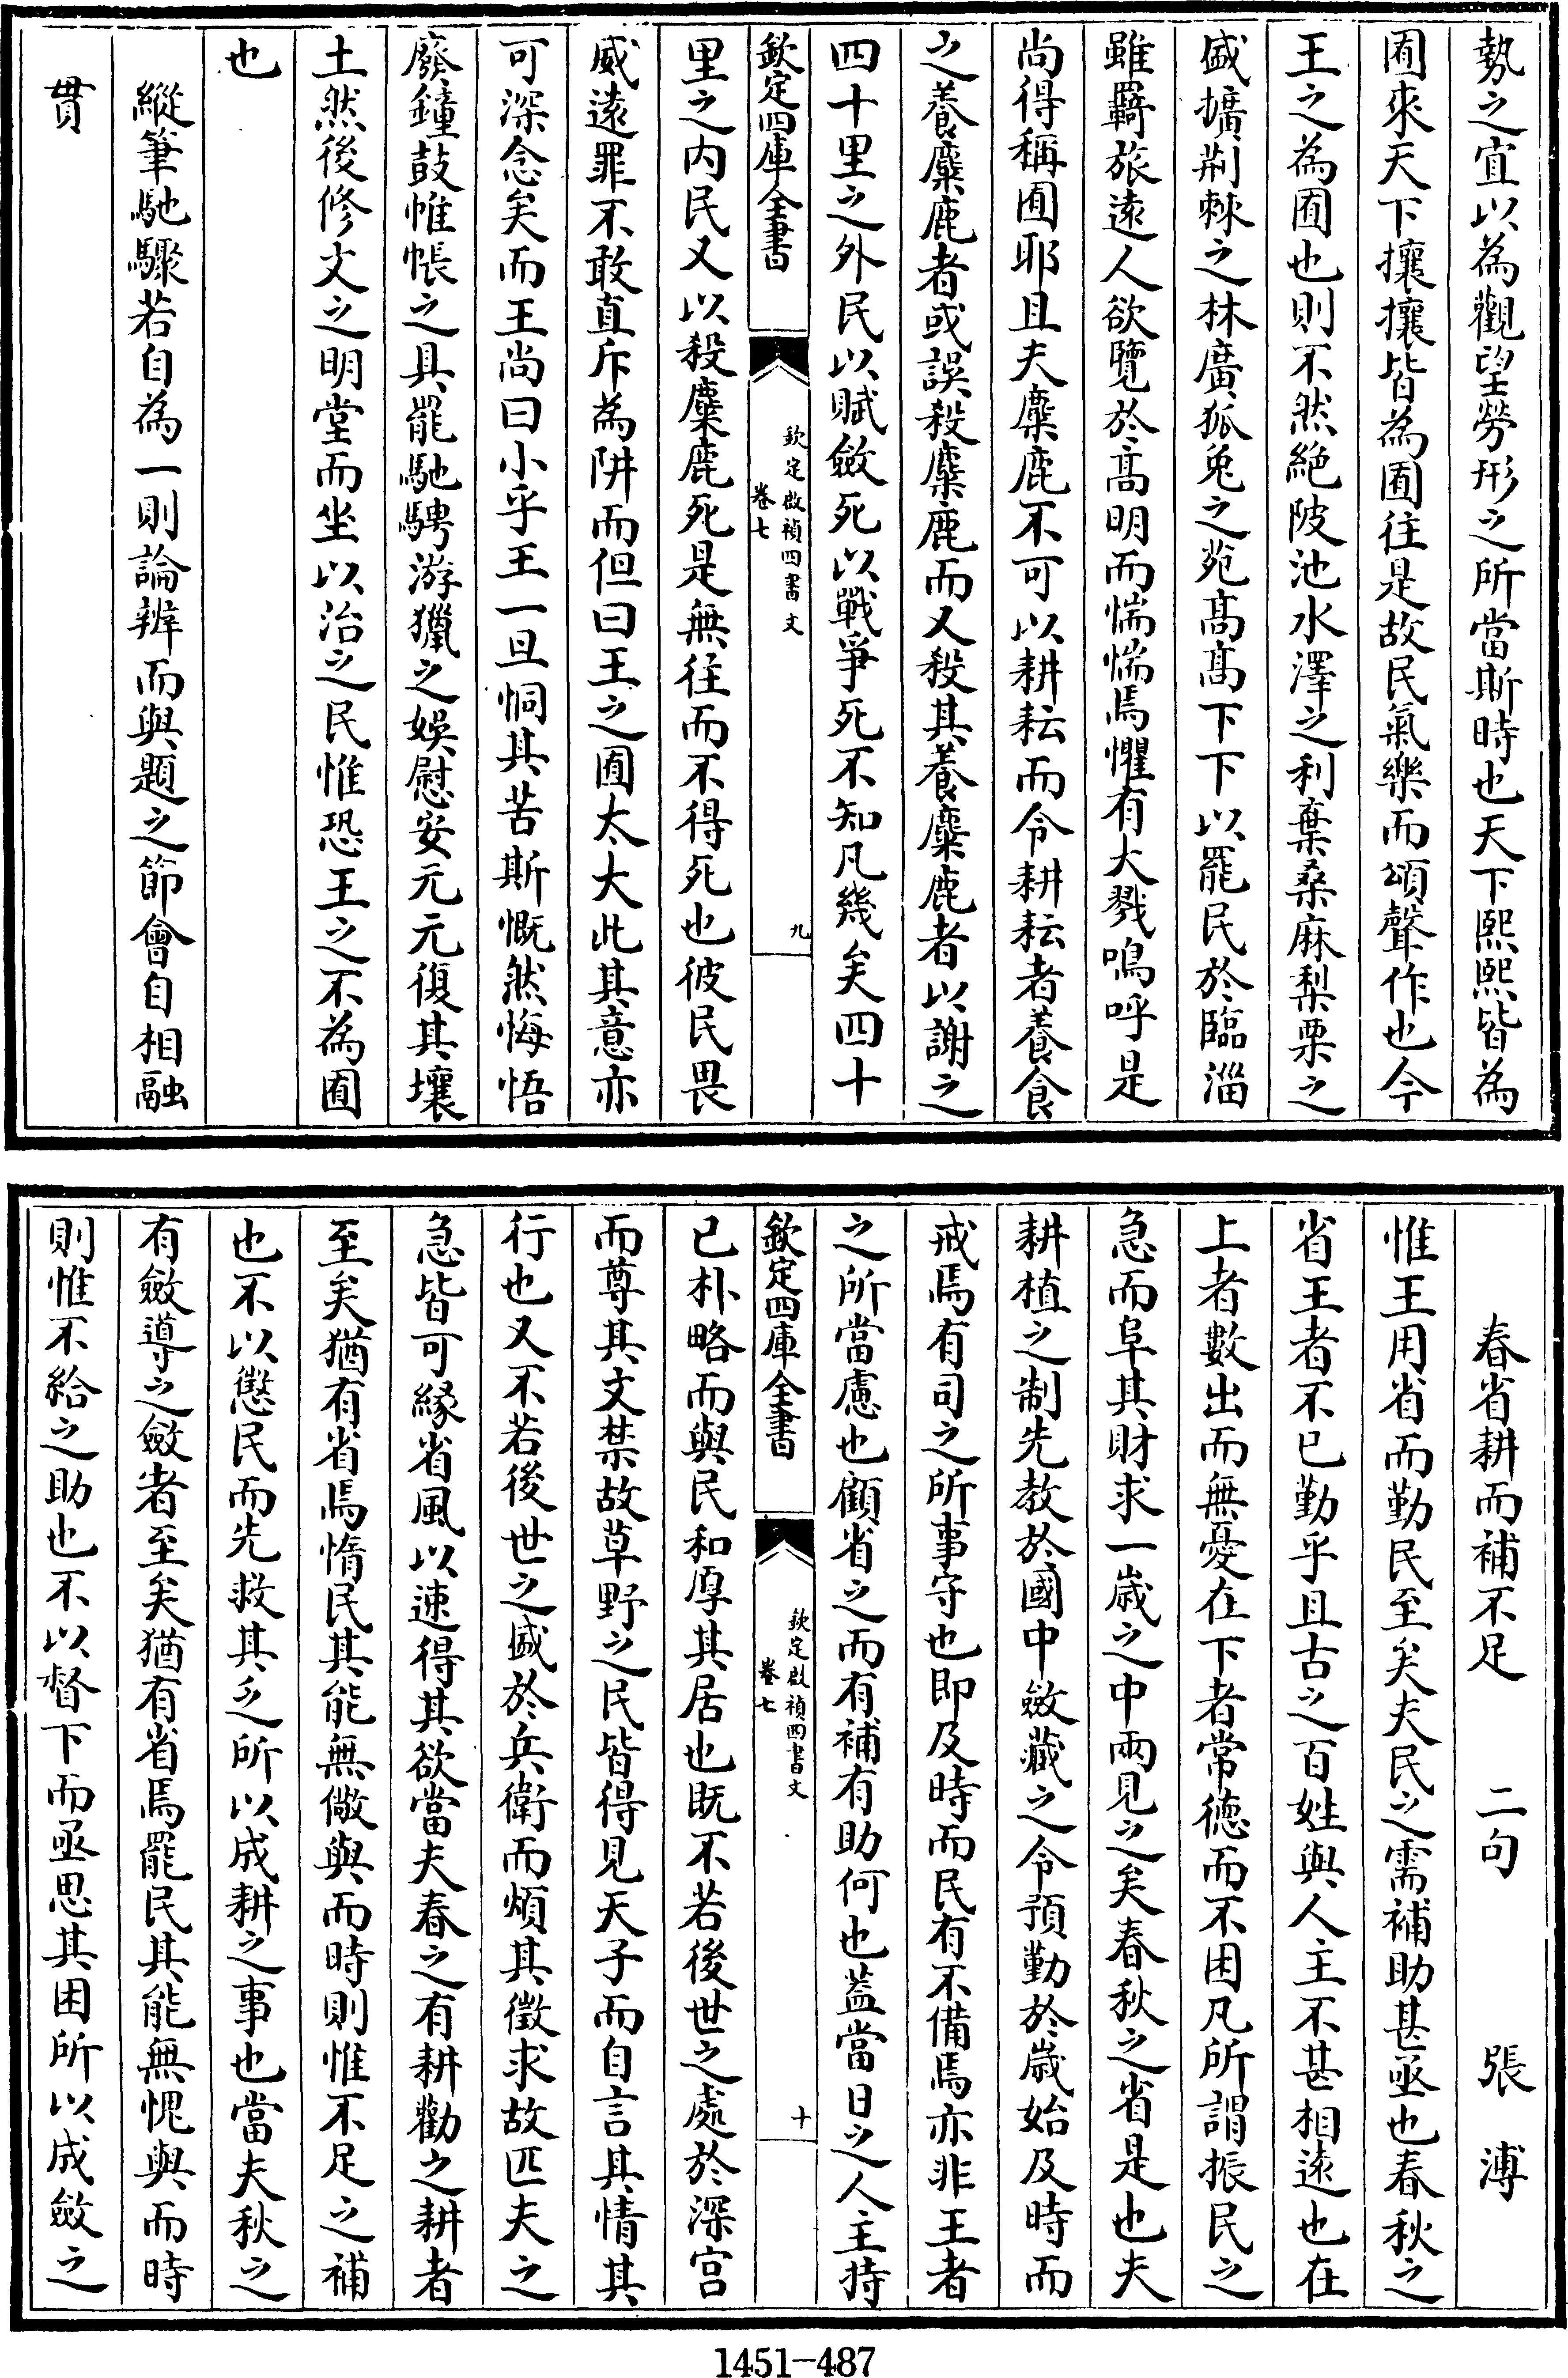 勢之宜以為觀望勞形之所當斯時也天下熙熙皆為
囿來天下攘攘皆為囿往是故民氣樂而頌聲作也今
王之為囿也則不然絶陂池水澤之利棄桑麻梨栗之
盛擴荆棘之林廣狐兎之苑髙髙下下以罷民於臨淄
雖羈旅逺人欲覽於髙明而惴惴焉懼有大戮鳴呼是
尚得稱囿耶且夫麋鹿不可以耕耘而令耕耘者養食
之養麋鹿者或誤殺麋鹿而又殺其養麋鹿者以謝之
四十里之外民以賦斂死以戰爭死不知凡幾矣四十
欽定四庫全書
欽定啟禎四書文
卷七
九
里之内民又以殺麋鹿死是無往而不得死也彼民畏
威逺罪不敢直斥為阱而但曰王之囿太大此其意亦
可深念矣而王尚曰小乎王一旦恫其苦斯慨然悔悟
廢鐘鼓帷帳之具罷馳騁游獵之娛慰安元元復其壤
土然後修文之明堂而坐以治之民惟恐王之不為囿
也
縱筆馳驟若自為一則論辨而與題之節㑹自相融
貫
春省耕而補不足　二句　張溥
惟王用省而勤民至矣夫民之需補助甚亟也春秋之
省王者不已勤乎且古之百姓與人主不甚相逺也在
上者數出而無憂在下者常德而不困凡所謂振民之
急而阜其財求一嵗之中兩見之矣春秋之省是也夫
耕植之制先教於國中斂藏之令預勤於嵗始及時而
戒焉有司之所事守也即及時而民有不備焉亦非王者
之所當慮也顧省之而有補有助何也葢當日之人主持
欽定四庫全書
欽定啟禎四書文
卷七
十
已朴略而與民和厚其居也既不若後世之處於深宫
而尊其文禁故草野之民皆得見天子而自言其情其
行也又不若後世之盛於兵衛而煩其徵求故匹夫之
急皆可縁省風以速得其欲當夫春之有耕勸之耕者
至矣猶有省焉惰民其能無儆與而時則惟不足之補
也不以懲民而先救其乏所以成耕之事也當夫秋之
有斂導之斂者至矣猶有省焉罷民其能無愧與而時
則惟不給之助也不以督下而亟思其困所以成斂之
1451-487